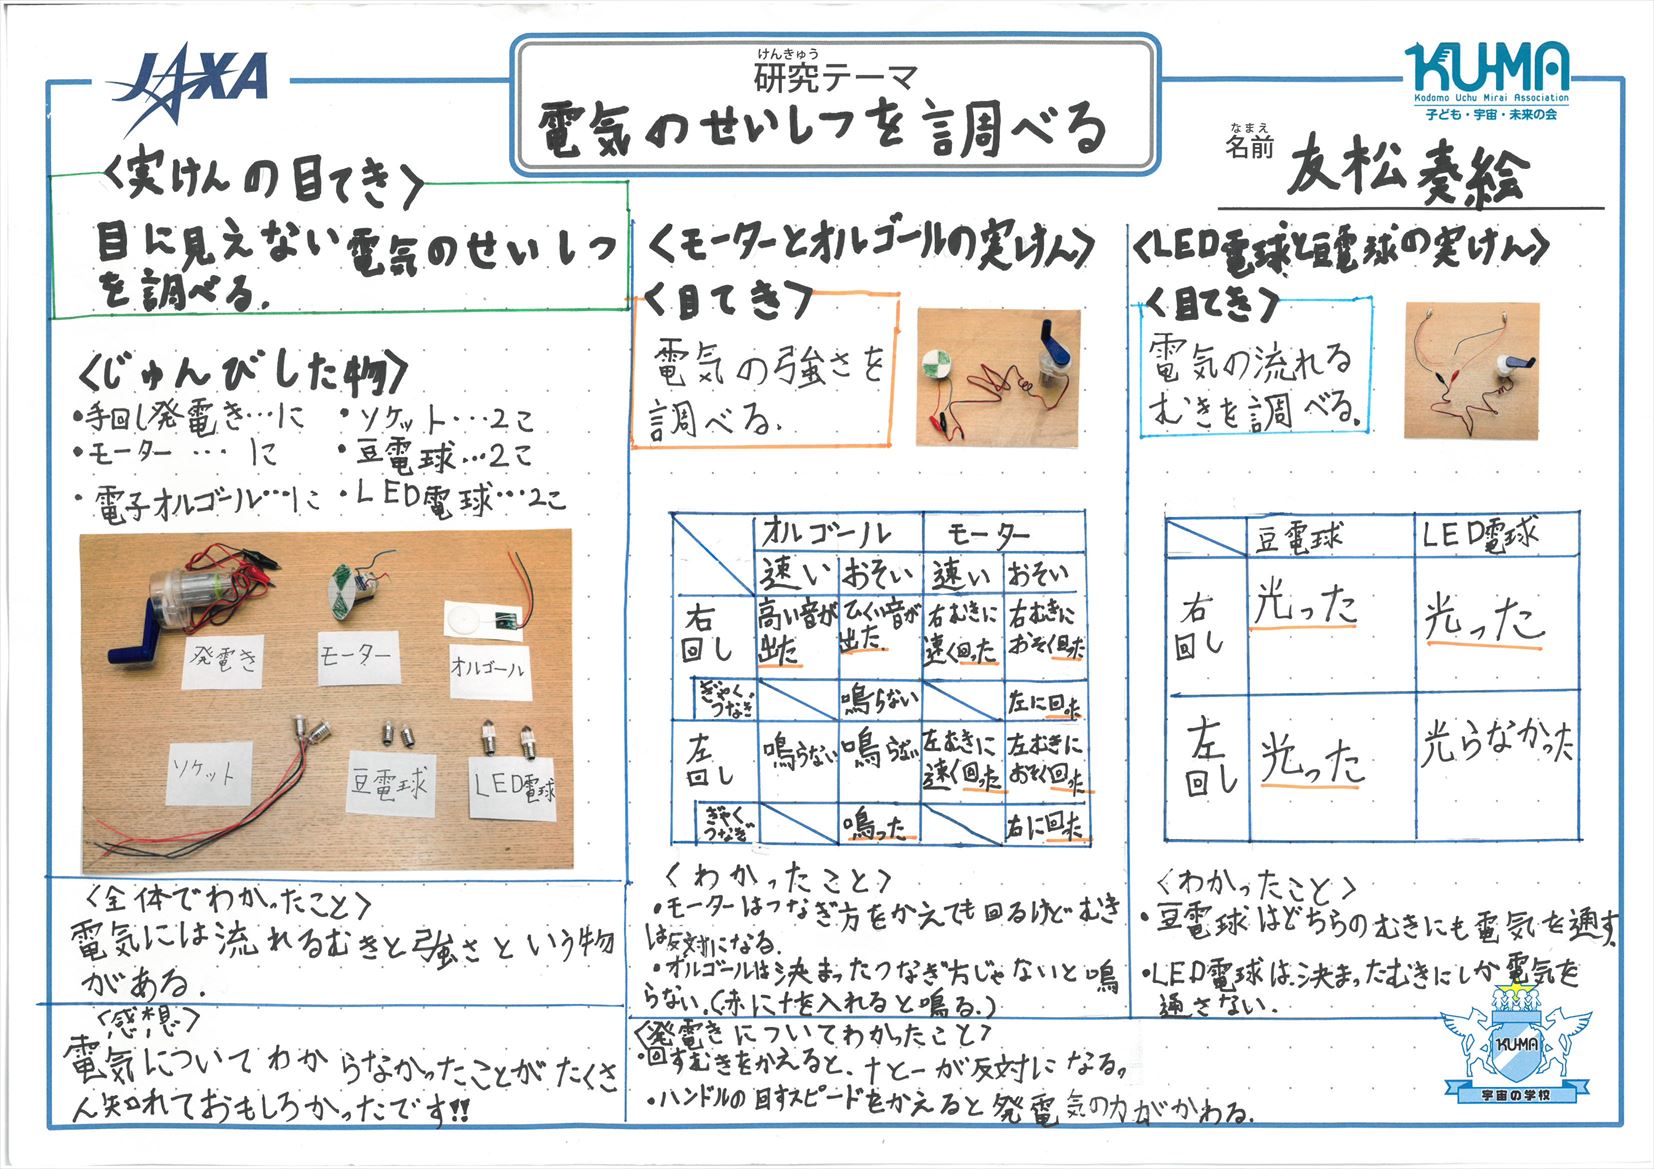 JAXA
けんきゅう
研究テーマ
電気のせいしつを調べる
KU-MA
Kodomo Uchu Mirai Association
子ども・宇宙・未来の会
なまえ
名前
友松奏絵
〈実けんの目てき〉
目に見えない電気のせいしつ
を調べる.
〈じゅんびした物〉
・手回し発電き…1こ
・モーター…1こ
・電子オルゴール…1こ
・ソケット…2こ
・豆電球…2こ
・LED電球…2こ
発電き
モーター
オルゴール
ソケット
豆電球
LED電球
〈全体でわかったこと〉
電気には流れるむきと強さという物
がある.
〈感想〉
電気についてわからなかったことがたくさ
ん知れておもしろかったです!!
〈モーターとオルゴールの実けん〉
〈目てき〉
電気の強さを
調べる.
オルゴール モーター
速い おそい 速い おそい
右回し
高い音が出た
ひくい音が出た.
右むきに速く回った
右むきにおそく回った
ぎゃくつなぎ
鳴らない
左に回った
左回し
鳴らない
鳴らない
左むきに速く回った
左むきにおそく回った
ぎゃくつなぎ
鳴った
右に回った
〈わかったこと〉
・モーターはつなぎ方をかえても回るけどむき
は反対になる.
・オルゴールは決まったつなぎ方じゃないと鳴
らない.(赤に+を入れると鳴る.)
〈発電きについてわかったこと〉
・回すむきをかえると、+と-が反対になる。
・ハンドルの回すスピードをかえると発電気の力がかわる.
〈LED電球と豆電球の実けん〉
〈目てき〉
電気の流れる
むきを調べる.
豆電球 LED電球
右回し
光った
光った
左回し
光った
光らなかった
〈わかったこと〉
・豆電球はどちらのむきにも電気を通す.
・LED電球は決まったむきにしか電気を
通さない.
KU-MA
宇宙の学校